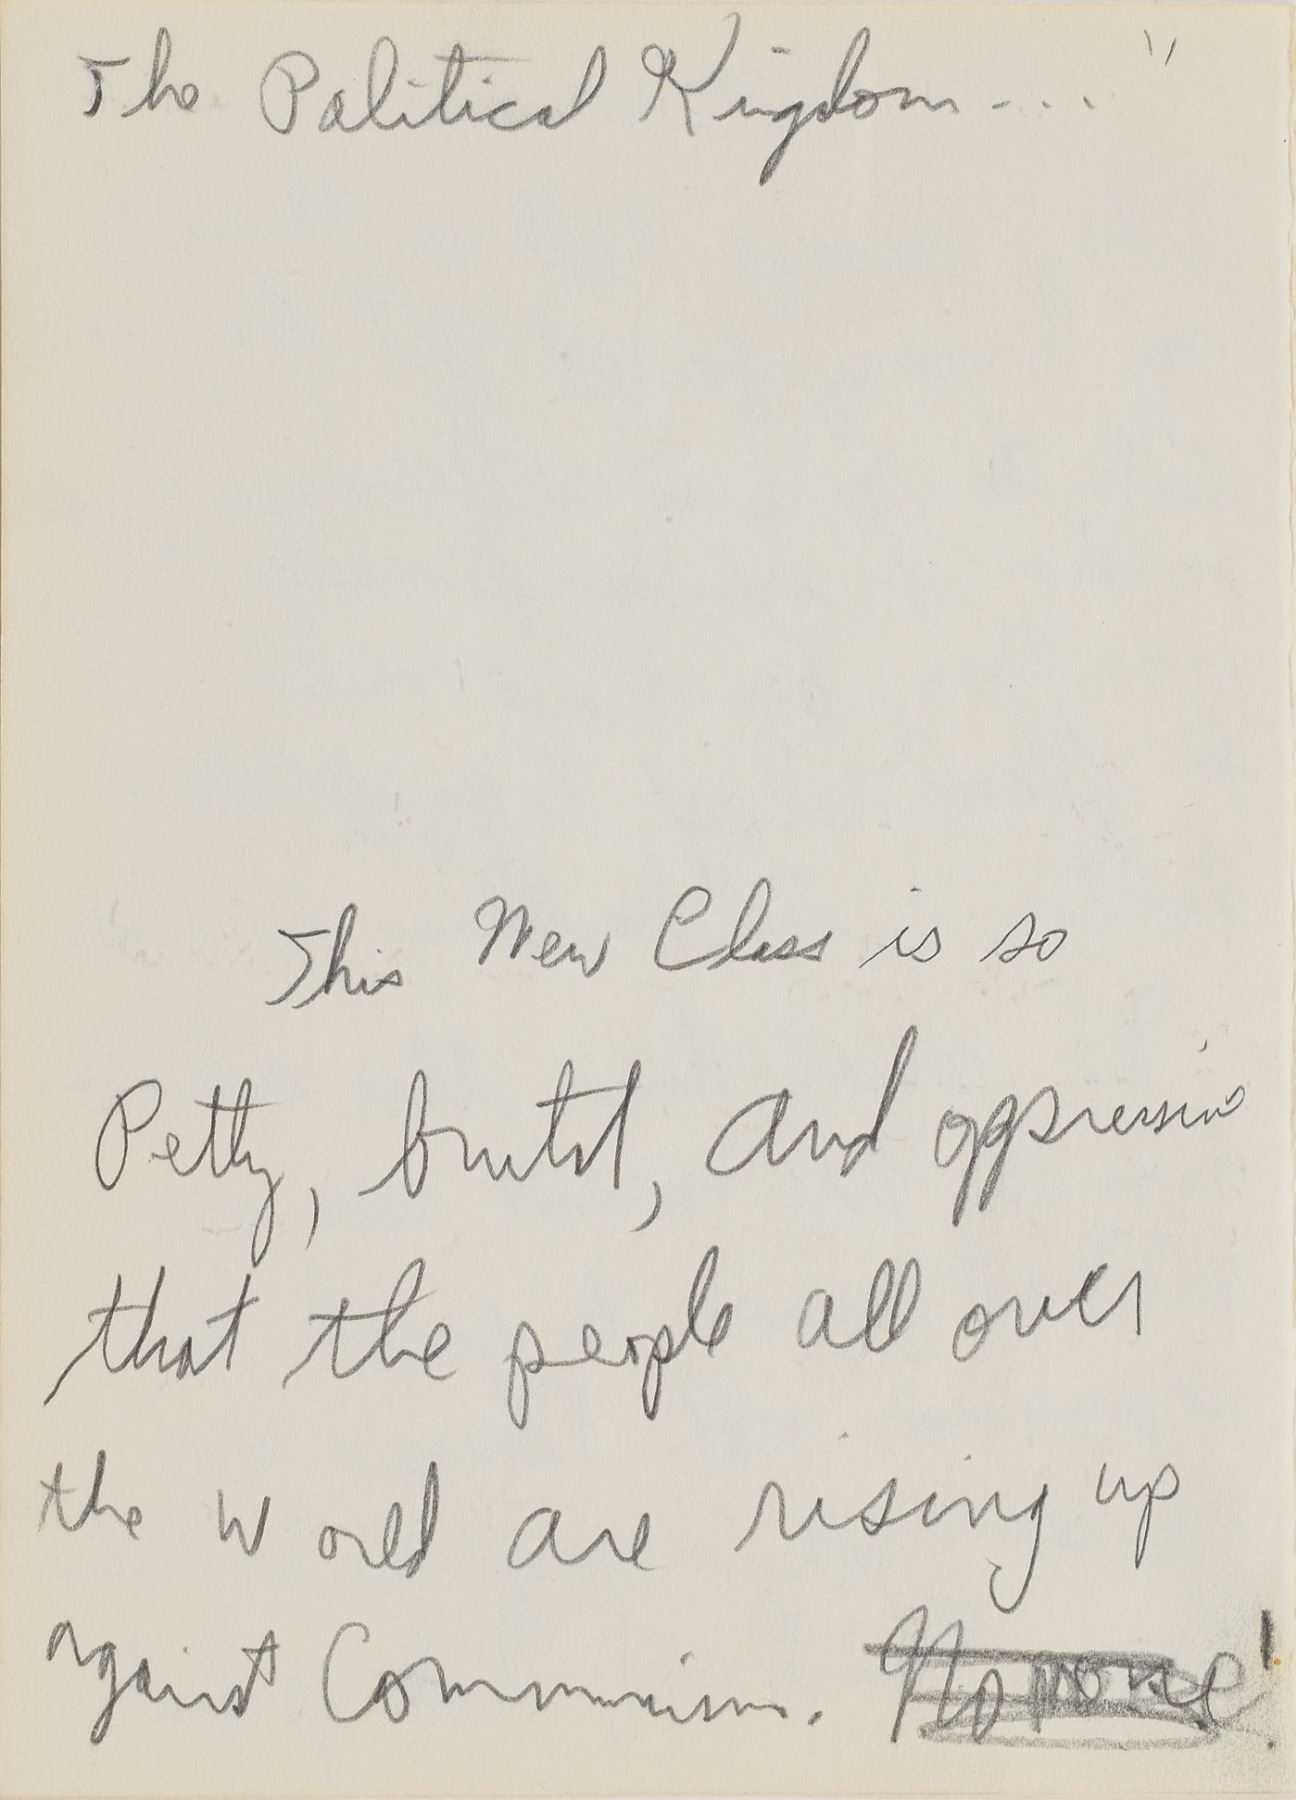 The Political Kingdom...."
This New Class is so
Petty, brutal, and oppressive
that the people all over
the world are rising up
against Communism. No more!